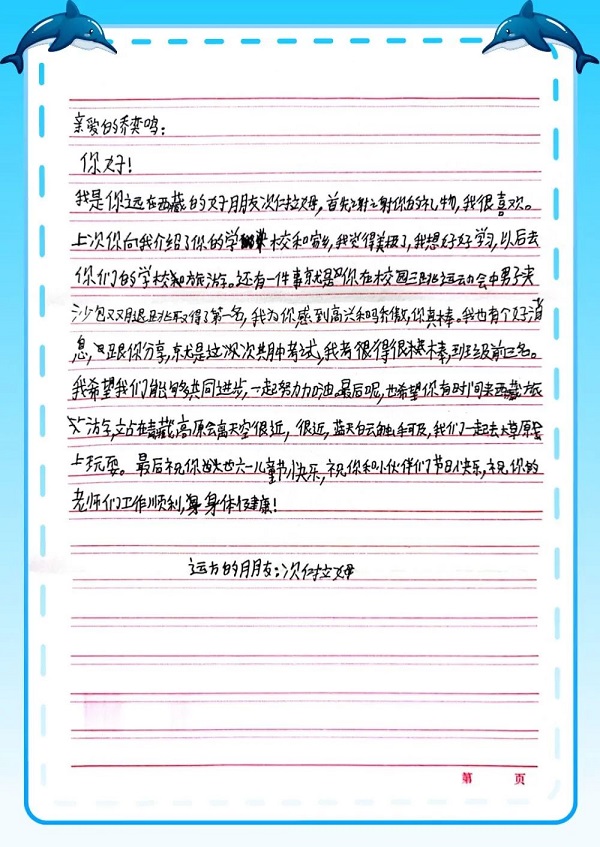 亲爱的乔奕鸣：
你好！
我是你远在西藏的好朋友次仁拉姆，首先谢谢你的礼物，我很喜欢。
上次你向我介绍了你的学校和家乡，我觉得美极了，我想好好学习，以后去
你们的学校和旅游。还有一件事就是你在校园三跳运动会中男子夹
沙包双月退跳取得了第一名，我为你感到高兴和骄傲，你真棒。我也有个好消
息，跟你分享，就是这次期中考试，我考很得很棒，到班级前三名。
我希望我们能够共同进步，一起努力加油。最后呢，也希望你有时间来西藏旅
游，站在青藏高原会离天空很近，很近，蓝天白云触手可及，我们一起去大草原
上玩耍。最后祝你六一儿童节快乐，祝你和小伙伴们节日快乐，祝你的
老师们工作顺利，身体健康！
远方的朋友：次仁拉姆
第 页